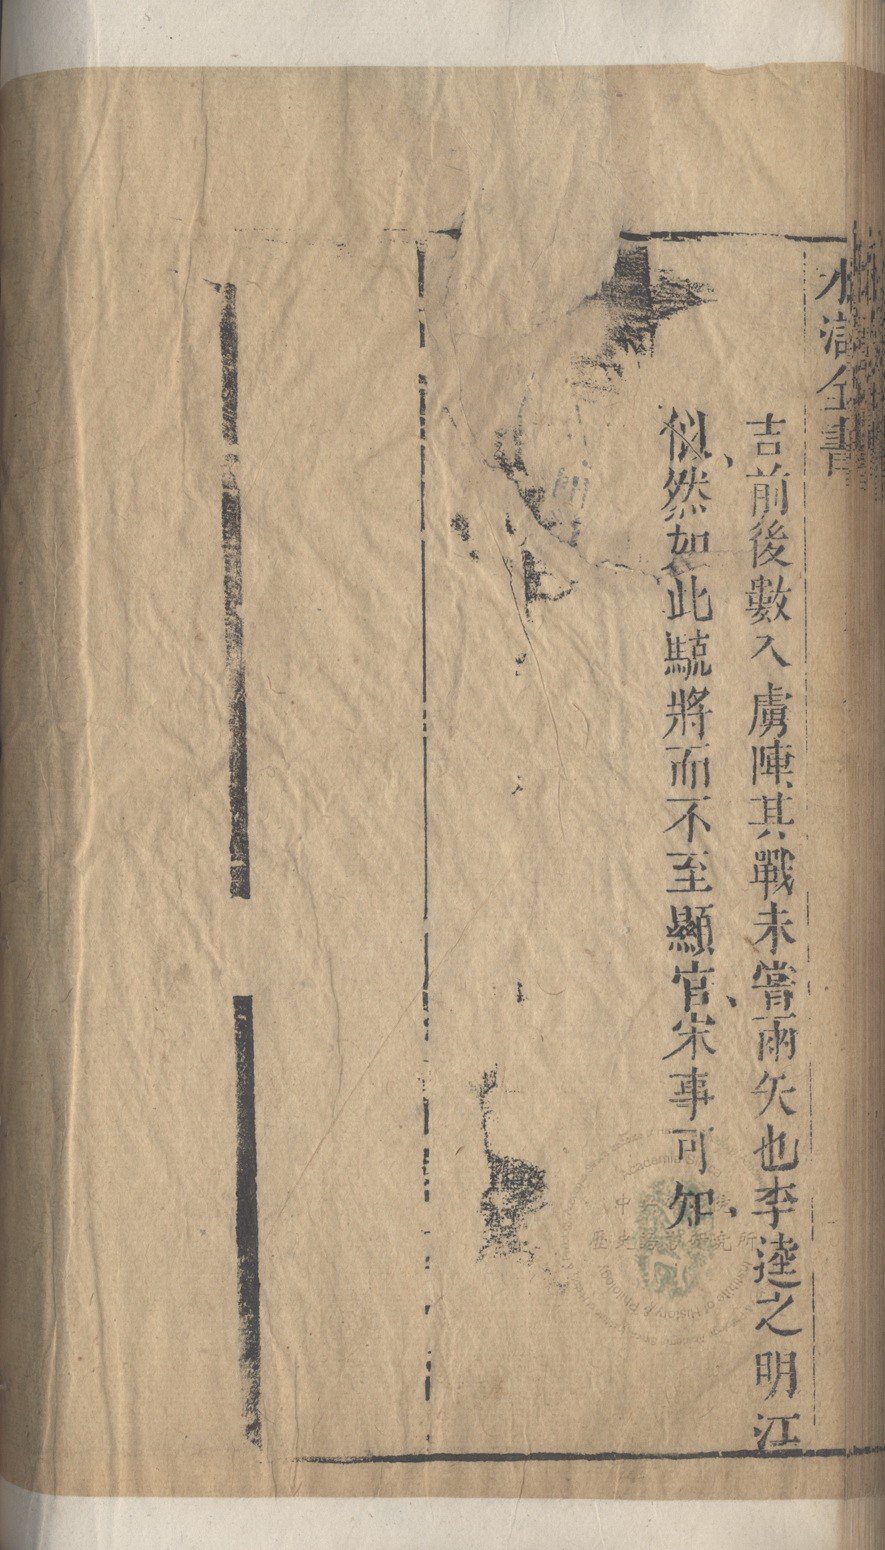 水滸全書
吉前後數入虜陣其戰未嘗兩矢也李逵之明江
似然如此驍將而不至顯官宋事可知
歷史語言研究所